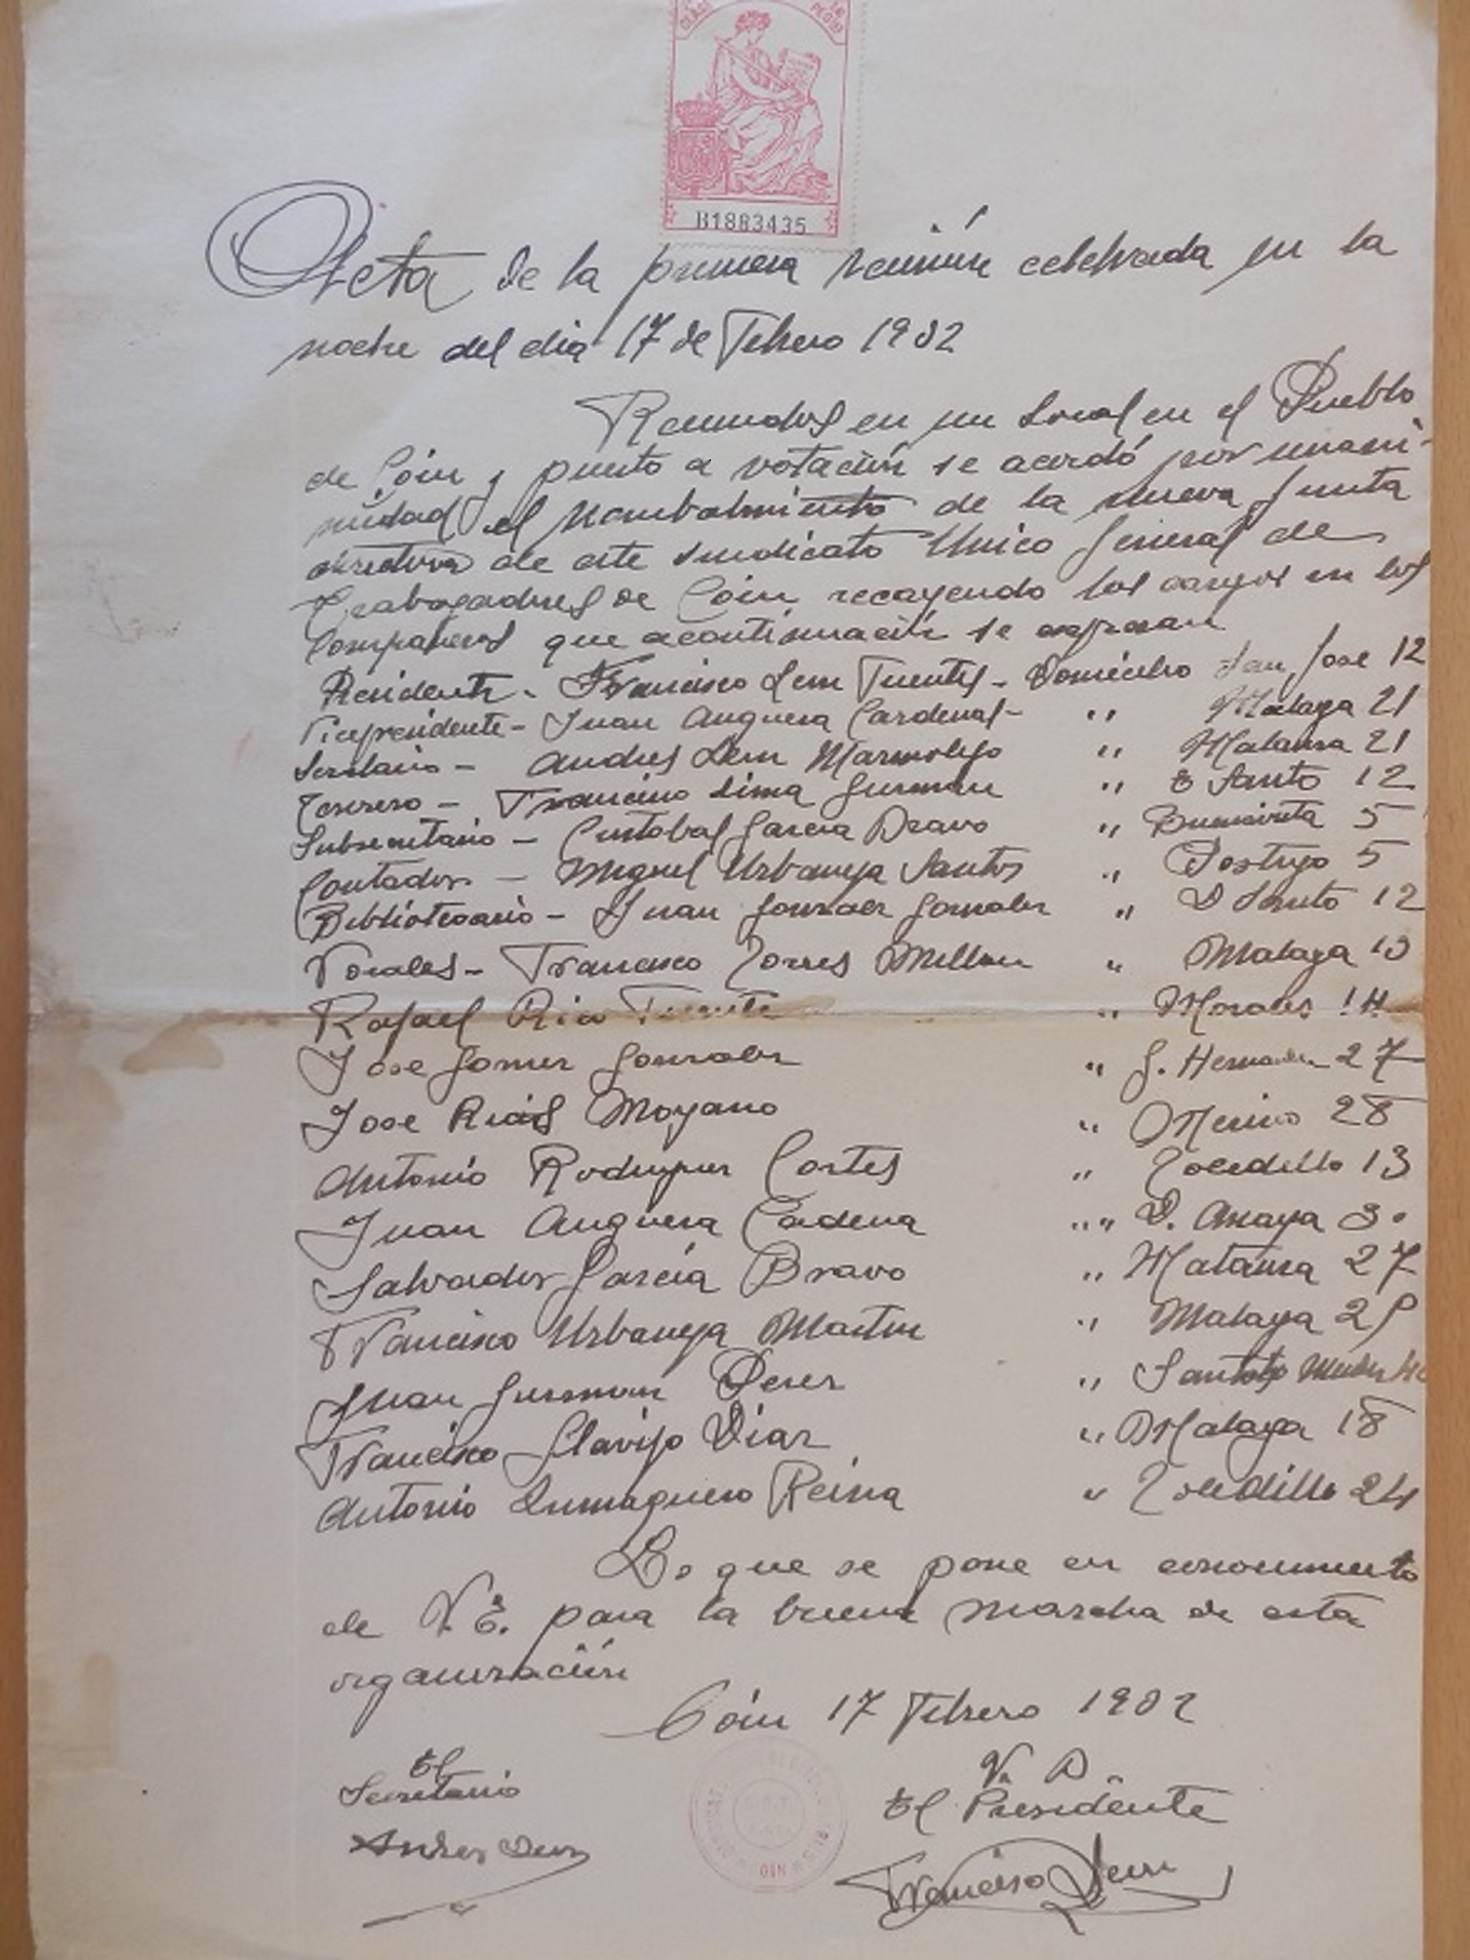 B1883435
Acta de la primera reunión celebrada en la
noche del dia 17 de Febrero 1932
Reunidos en un Local en el Pueblo
de Cóin y puesto a votación se acordó por unani-
midad el Nombalmiento de la nueva Junta
directiva de este Sindicato Unico General de
Trabajadores de Cóin recayendo los cargos en los
Compañeros que acontinuación se expresan
Presidente - Francisco Fuentes - Domicilio San Jose 12
Vicepresidente - Juan Anguera Cardenas - " Malaga 21
Secretario - Andres Marmolejo " Matanza 21
Tesorero - Francisco Lima Gusman " E Santo 12
Subsecretario - Cristobal Garcia Bravo " Buenavista 5
Contador - Miguel Urbaneja Santos " Postigo 5
Bibliotecario - Juan Gonzalez Gonzalez " Santo 12
Vocales - Francisco Torres Millan " Malaga 13
Rafael Fuente " Morales 14
Jose Gomez Gonzalez " G. Hernandez 27
Jose Rios Moyano " Merino 28
Antonio Rodriguez Cortes " Tocedillo 13
Juan Anguera Cardena " D. Anaya 30
Salvador Garcia Bravo " Matanza 27
Francisco Urbaneja Martin " Malaga 25
Juan Gusman Perez "
Francisco Clavijo Diaz " Malaga 18
Antonio Lumaquero Reina " Tocedillo 24
Lo que se pone en conocimiento
de V.E. para la buena marcha de esta
organización
Cóin 17 Febrero 1932
El
Secretario
Andres
Vº Bº
El Presidente
Francisco